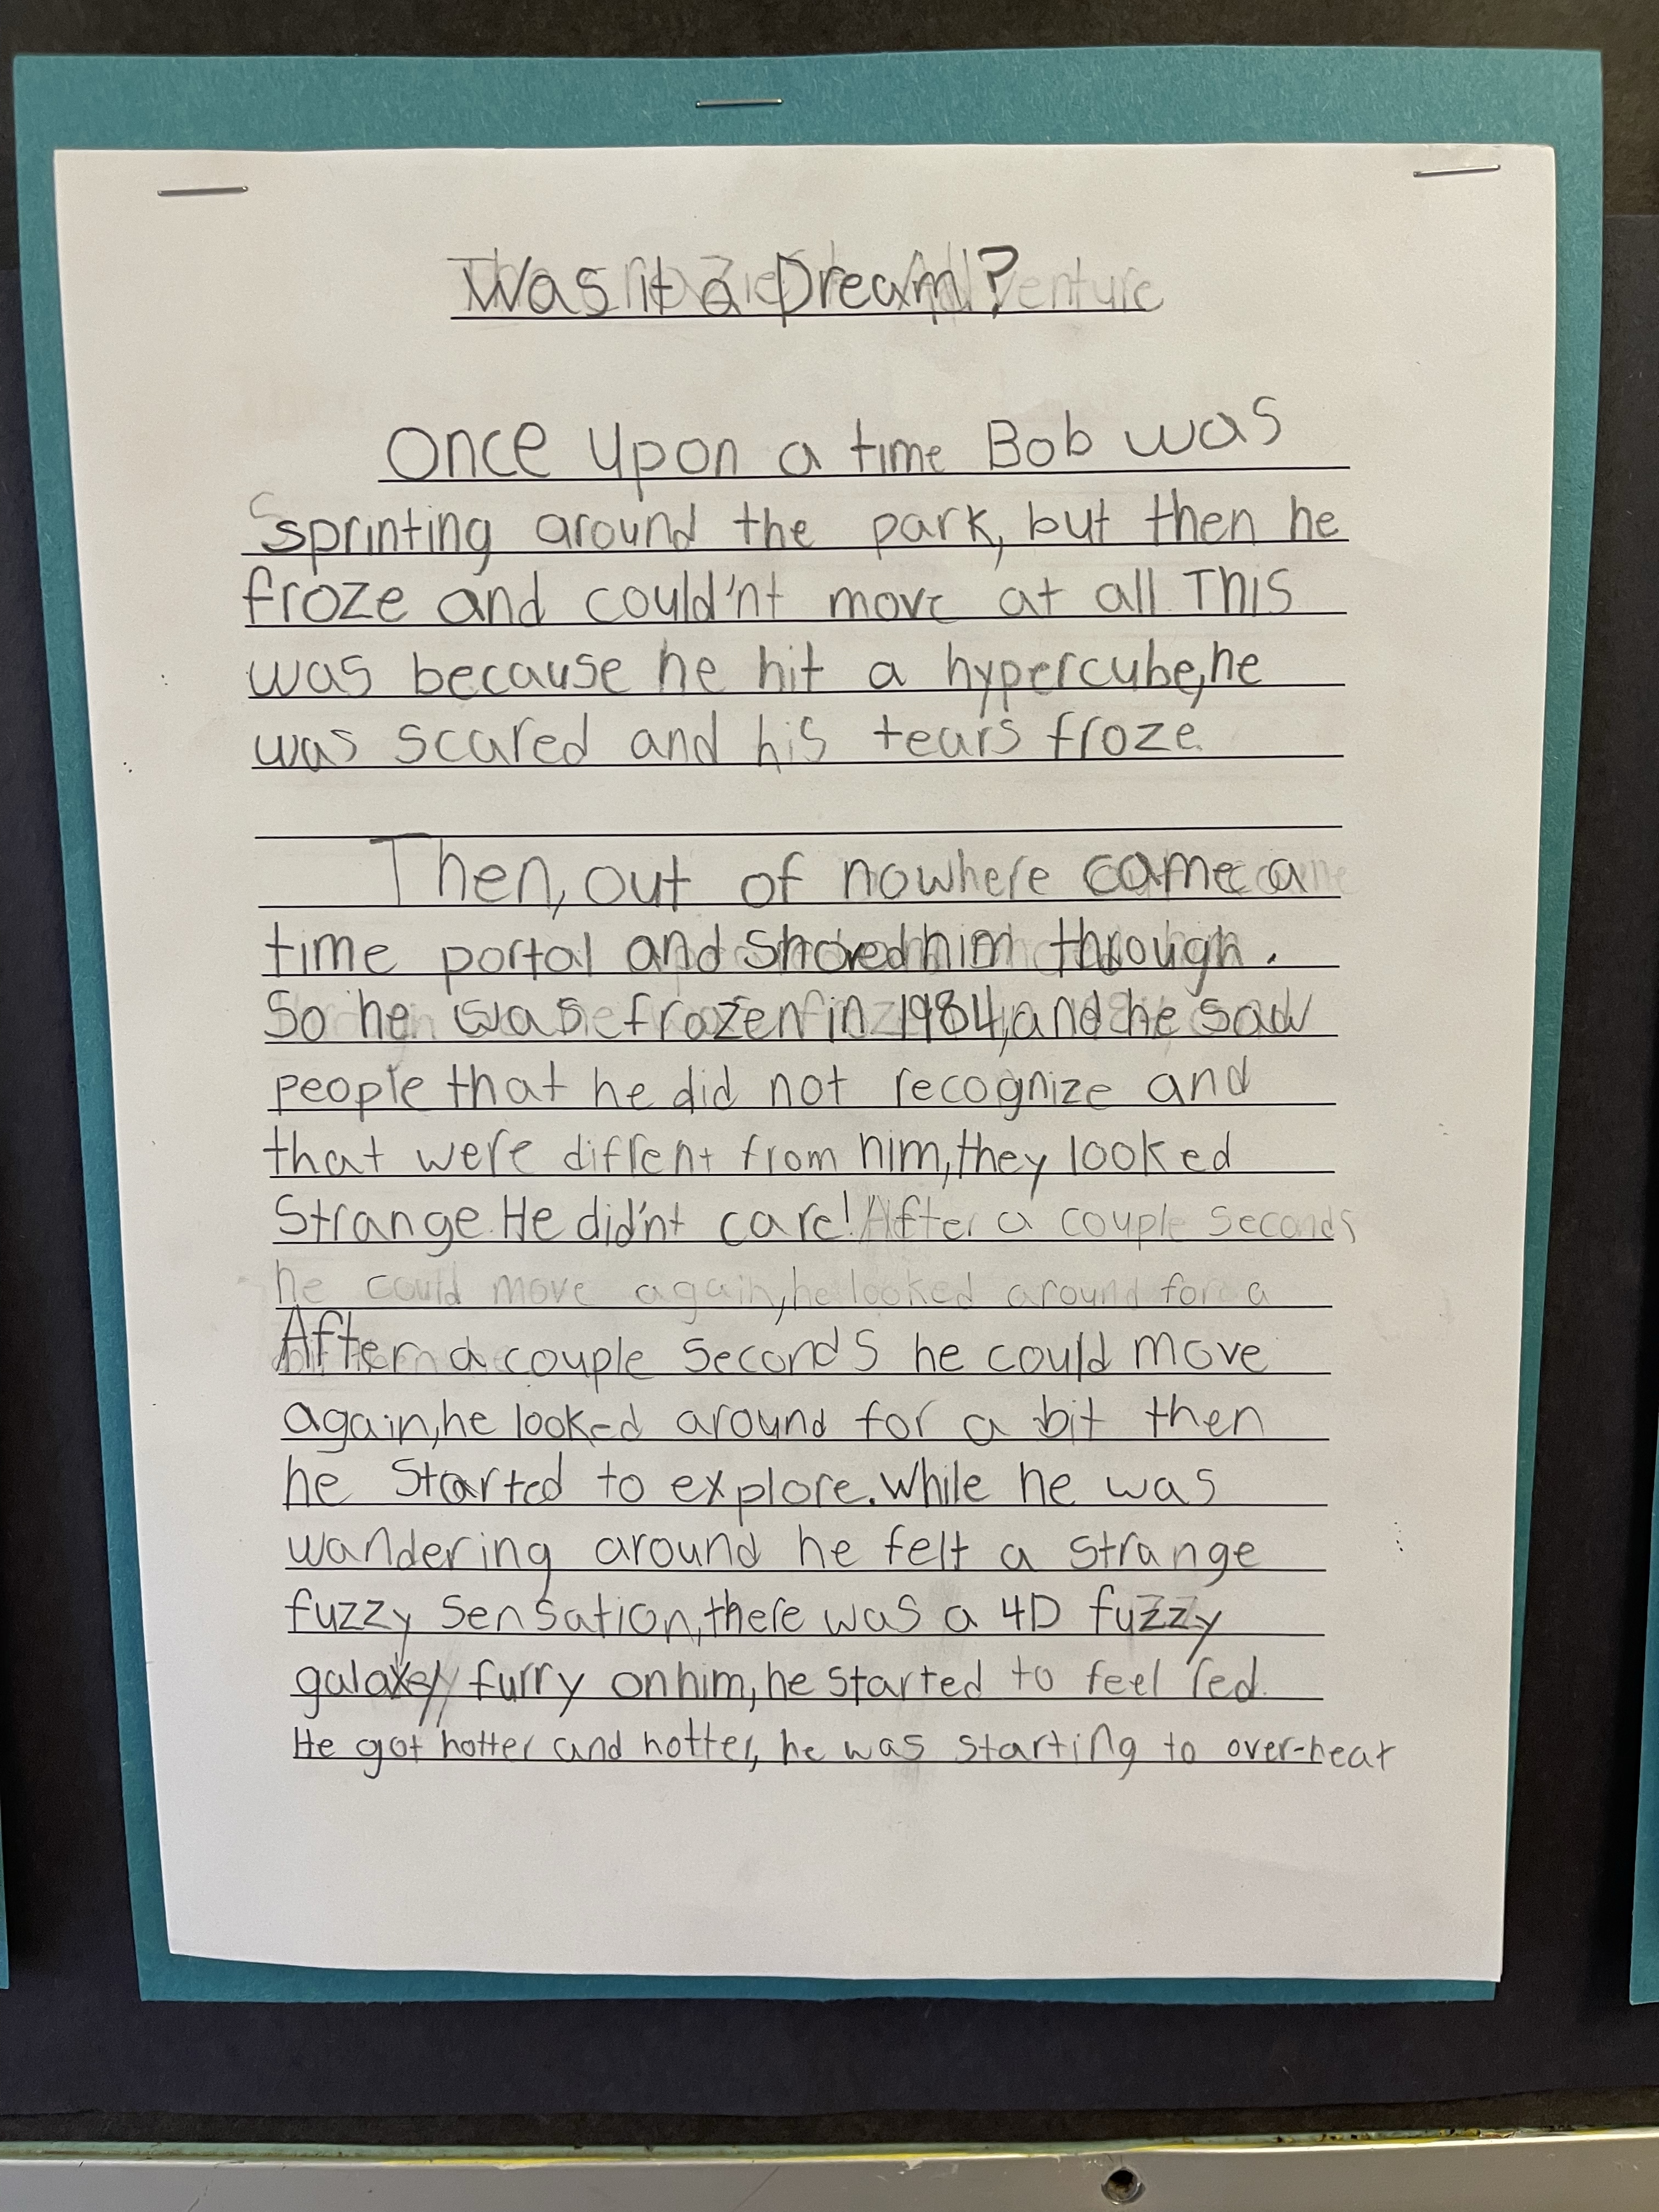 Was it a Dream?
Once upon a time Bob was
sprinting around the park, but then he
froze and could'nt move at all. This
was because he hit a hypercube, he
was scared and his tears froze.
Then, out of nowhere came a
time portal and shoved him through.
So he was frozen in 1984, and he saw
people that he did not recognize and
that were diffrent from him, they looked
Strange. He did'nt care! After a couple seconds
he could move again, he looked around for a
After a couple seconds he could move
again, he looked around for a bit then
he started to explore. While he was
wandering around he felt a strange
fuzzy sensation, there was a 4D fuzzy
furry on him, he started to feel red.
He got hotter and hotter, he was starting to over-heat